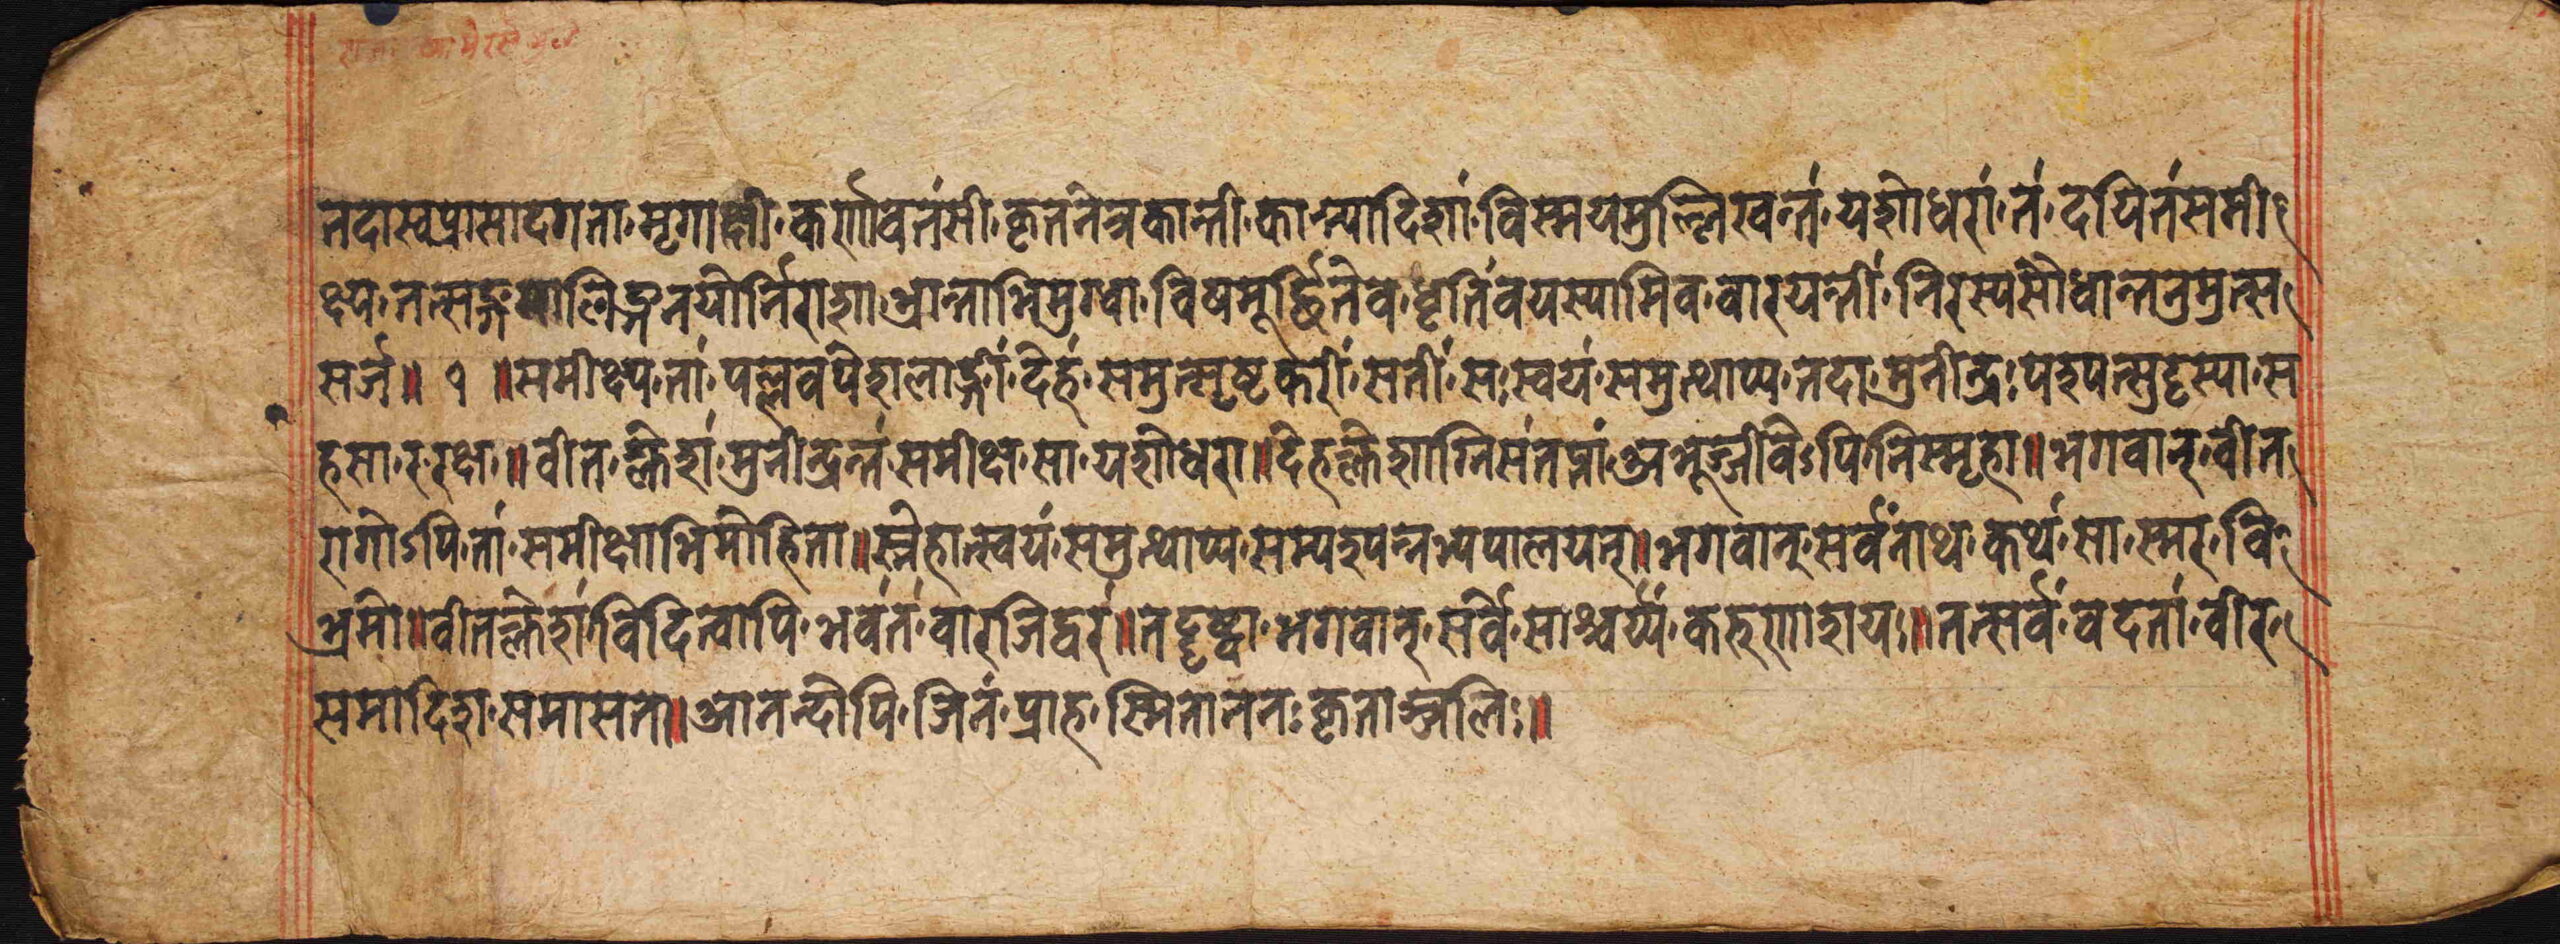 तदास्वप्रासादगता मृगाक्षी कर्णावतंसी कृतनेत्रकान्ती कान्त्यादिशां विस्मयमुल्लिखन्तं यशोधरा तं दयितं समी
क्ष्य तत्सङ्गमालिङ्गनयोर्निराशा भ्रान्ताभिमुग्धा विषमूर्च्छितेव धृतिं वयस्यामिव वारयन्तीं निरस्य सौधात्तनुमुत्स
सर्ज॥ १ ॥समीक्ष्य तां पल्लवपेशलाङ्गीं देहं समुत्सृष्टकरीं सतीं सः स्वयं समुत्थाप्य तदा मुनीन्द्रः पश्यन्सुदृस्या स
हसा ररक्ष ॥ वीत क्लेशं मुनीन्द्रन्तं समीक्ष सा यशोधरा॥देहक्लेशाग्निसंतप्तां अभूज्जीवेऽपि निस्पृहा॥भगवान् वीत
रागोऽपि तां समीक्षाभिमोहिता॥स्नेहात्स्वयं समुत्थाप्य सम्पश्यन्नभ्यपालयत्॥भगवान् सर्वनाथ कथं सा स्मर वि
भ्रमो॥वीतक्लेशं विदित्वापि भवंतं वारजिद्वर॥तद्दृष्ट्वा भगवान् सर्वे साश्चर्य्यं करुणाशय॥तत्सर्वं वदतां वीर
समादिश समासतो॥आनन्दोपि जिनं प्राह स्मितानन कृताञ्जलिः॥